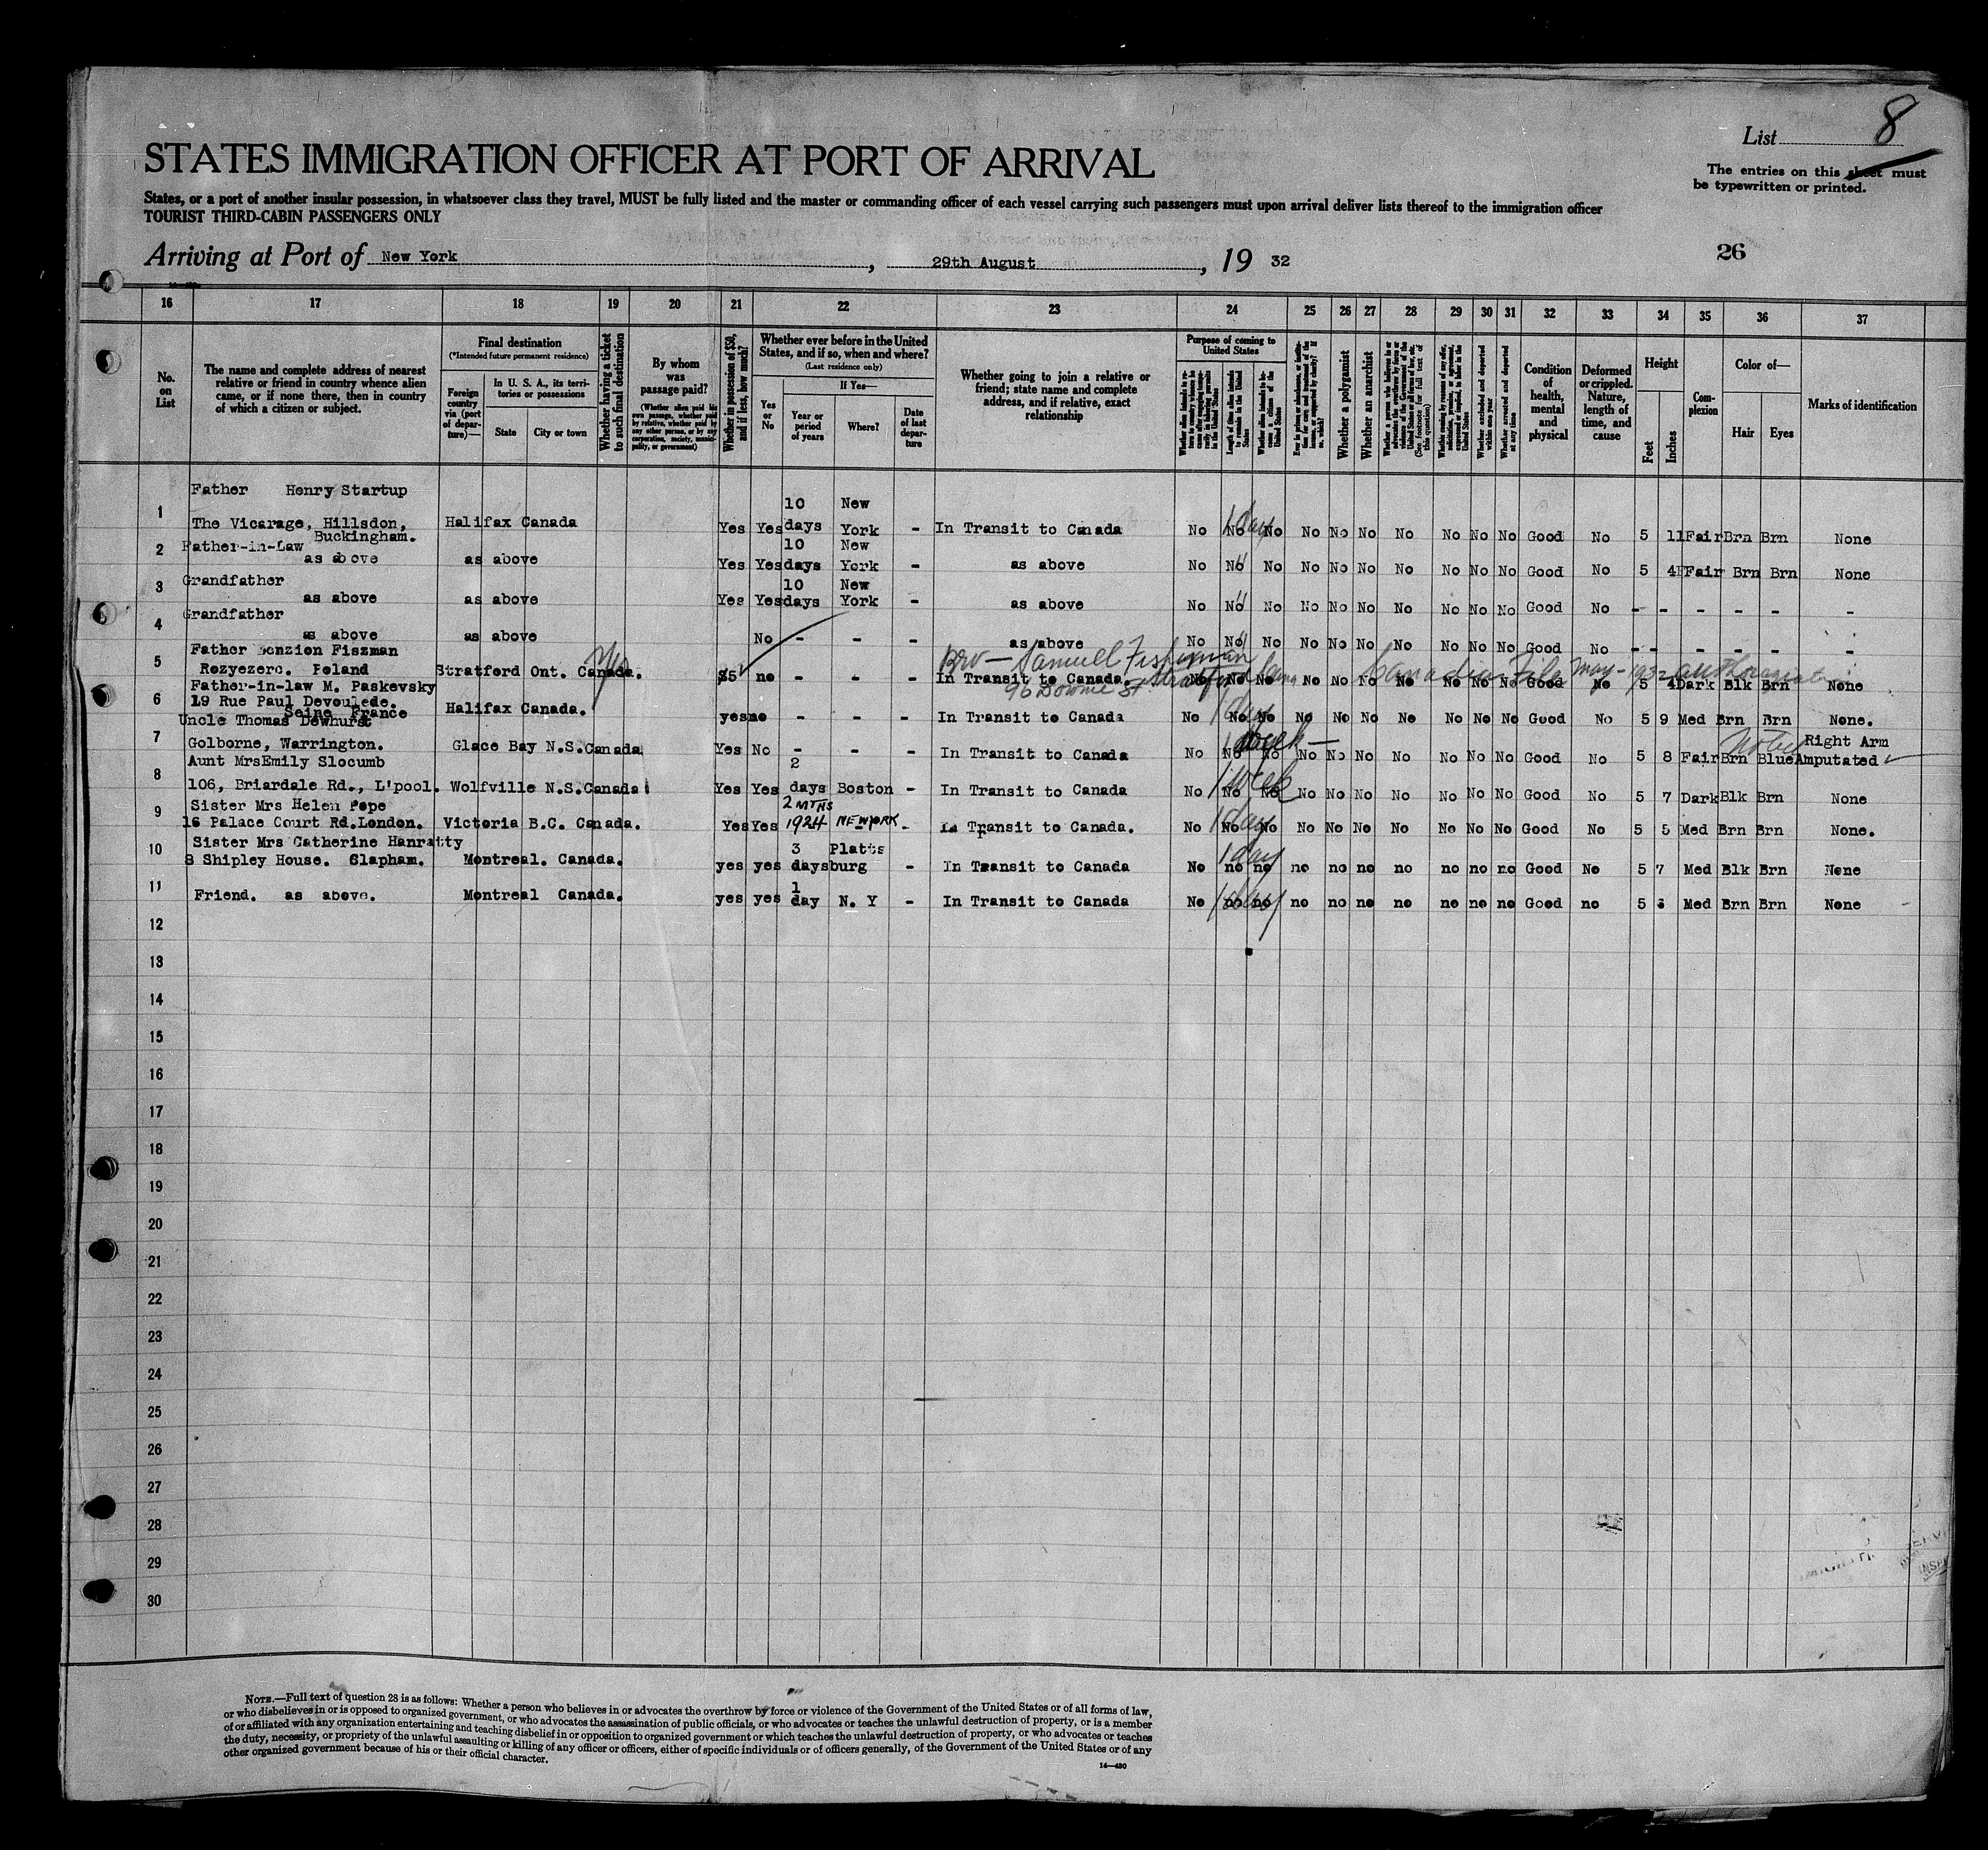 List 8
The entries on this sheet must
be typewritten or printed.
STATES IMMIGRATION OFFICER AT PORT OF ARRIVAL
States, or a port of another insular possession, in whatsoever class they travel, MUST be fully listed and the master or commanding officer of each vessel carrying such passengers must upon arrival deliver lists thereof to the immigration officer
TOURIST THIRD-CABIN PASSENGERS ONLY
Arriving at Port of New York, 29th August, 19 32
26
16 17 18 19 20 21 22 23 24 25 26 27 28 29 30 31 32 33 34 35 36 37
No. on List
The name and complete address of nearest relative or friend in country whence alien came, or if none there, then in country of which a citizen or subject.
Final destination
(*Intended future permanent residence)
Foreign country via (port of departure)—
In U. S. A., its territories or possessions
State
City or town
Whether having a ticket to such final destination
By whom was passage paid?
(Whether alien paid his own passage, whether paid by relative, whether paid by any other person, or by any corporation, society, municipality, or government)
Whether in possession of $50, and if less, how much?
Whether ever before in the United States, and if so, when and where?
(Last residence only)
Yes or No
If Yes—
Year or period of years
Where?
Date of last departure
Whether going to join a relative or friend; state name and complete address, and if relative, exact relationship
Purpose of coming to United States
Length of time alien intends to remain in the United States
Whether alien intends to become a citizen of the United States
Whether a polygamist
Whether an anarchist
(See footnote for full text of this question)
Whether excluded and deported within one year
Whether arrested and deported at any time
Condition of health, mental and physical
Deformed or crippled. Nature, length of time, and cause
Height
Feet
Inches
Complexion
Color of—
Hair
Eyes
Marks of identification
Father Henry Startup 10 New
1 The Vicarage, Hillsdon, Halifax Canada Yes Yes days York - In Transit to Canada No No No No No No No No No No Good No 5 11 Fair Brn Brn None
1 day
Buckingham.
2 Father-in-Law 10 New
as above as above Yes Yes days York - as above No No No No No No No No No No Good No 5 4 Fair Brn Brn None
3 Grandfather 10 New
as above as above Yes Yes days York - as above No No No No No No No No No No Good No - - - - - -
4 Grandfather
as above as above No - - - as above No No No No No No No No No No Good No - - - - - -
5 Father Benzion Fiszman
Bro — Samuel Fishman
Rozyezerc. Poland Stratford Ont. Canada. Yes $5 no - - - In Transit to Canada. No No No No No No No No No No Good No 5 4 Dark Blk Brn None
96 Downie St Stratford
Canadian File May-1932
6 Father-in-law M. Paskevsky
19 Rue Paul Devoulede. Halifax Canada. yes no - - - In Transit to Canada No No No No No No No No No No Good No 5 9 Med Brn Brn None.
Seine France
1 day
7 Uncle Thomas Dewhurst
Golborne, Warrington. Glace Bay N.S. Canada Yes No - - - In Transit to Canada No No No No No No No No No No Good No 5 8 Fair Brn Blue Right Arm Amputated
1 week — Noted
8 Aunt MrsEmily Slocumb 2
106, Briardale Rd., L'pool. Wolfville N.S.Canada Yes Yes days Boston - In Transit to Canada No No No No No No No No No No Good No 5 7 Dark Blk Brn None
1 week
9 Sister Mrs Helen Pope 2 MTHS
16 Palace Court Rd.London. Victoria B.C. Canada. Yes Yes 1924 NEWYORK - In Transit to Canada. No No No No No No No No No No Good No 5 5 Med Brn Brn None.
1 day
10 Sister Mrs Catherine Hanratty 3 Platts
8 Shipley House. Clapham. Montreal. Canada. yes yes days burg - In Transit to Canada No no no no no no no no no no Good No 5 7 Med Blk Brn None
1 day
11 Friend. as above. Montreal Canada. yes yes 1 day N. Y - In Transit to Canada No no no no no no no no no no Good no 5 Med Brn Brn None
1 day
12
13
14
15
16
17
18
19
20
21
22
23
24
25
26
27
28
29
30
NOTE.—Full text of question 28 is as follows: Whether a person who believes in or advocates the overthrow by force or violence of the Government of the United States or of all forms of law,
or who disbelieves in or is opposed to organized government, or who advocates the assassination of public officials, or who advocates or teaches the unlawful destruction of property, or is a member
of or affiliated with any organization entertaining and teaching disbelief in or opposition to organized government or which teaches the unlawful destruction of property, or who advocates or teaches
the duty, necessity, or propriety of the unlawful assaulting or killing of any officer or officers, either of specific individuals or of officers generally, of the Government of the United States or of any
other organized government because of his or their official character.
14—430